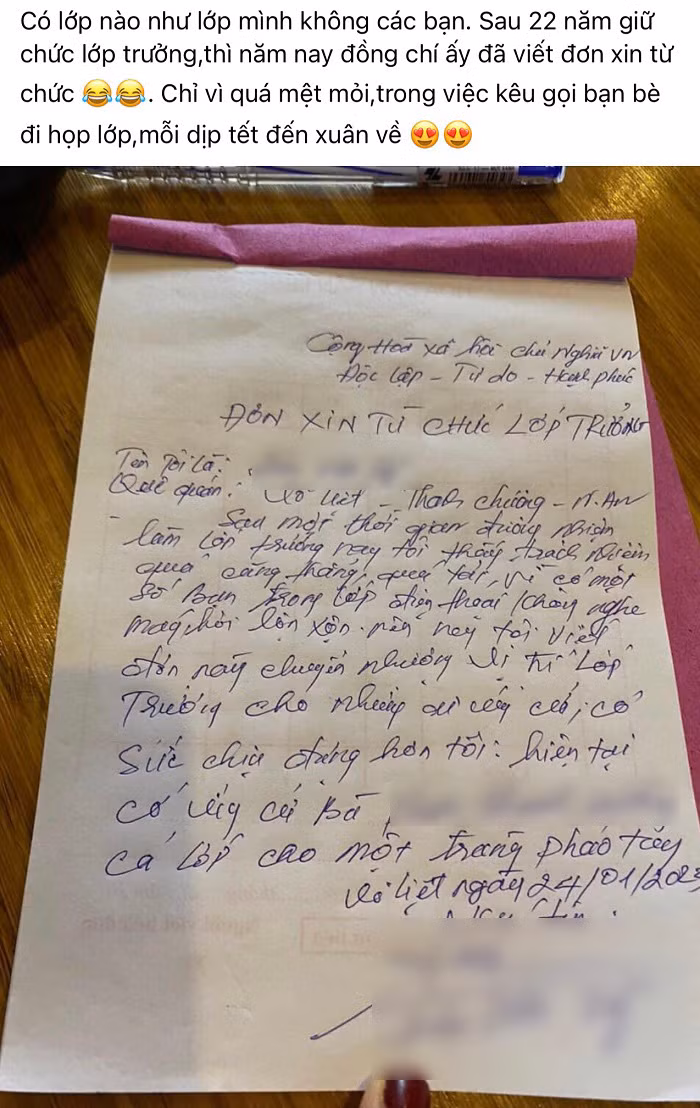 Có lớp nào như lớp mình không các bạn. Sau 22 năm giữ
chức lớp trưởng,thì năm nay đồng chí ấy đã viết đơn xin từ
chức 😂😂. Chỉ vì quá mệt mỏi,trong việc kêu gọi bạn bè
đi họp lớp,mỗi dịp tết đến xuân về 😍😍
Cộng Hoà xã hội chủ Nghĩa VN
Độc lập - Tự do - Hạnh phúc
ĐƠN XIN TỪ CHỨC LỚP TRƯỞNG
Tên Tôi là:
Quê quán: Võ Liệt - Thanh chương - N.AN
- Sau một thời gian đương nhiệm
làm lớp trưởng nay tôi thấy trách nhiệm
quá căng thẳng, quá tải, vì có một
số Bạn trong lớp điện thoại không nghe
máy, hỏi lộn xộn. nên nay tôi viết
đơn này chuyển nhượng vị trí Lớp
Trưởng cho những ai ứng cử, có
sức chịu đựng hơn tôi: hiện tại
có ứng cử Bà
cả Lớp cho một tràng pháo tay
Võ liệt ngày 24/01/2023